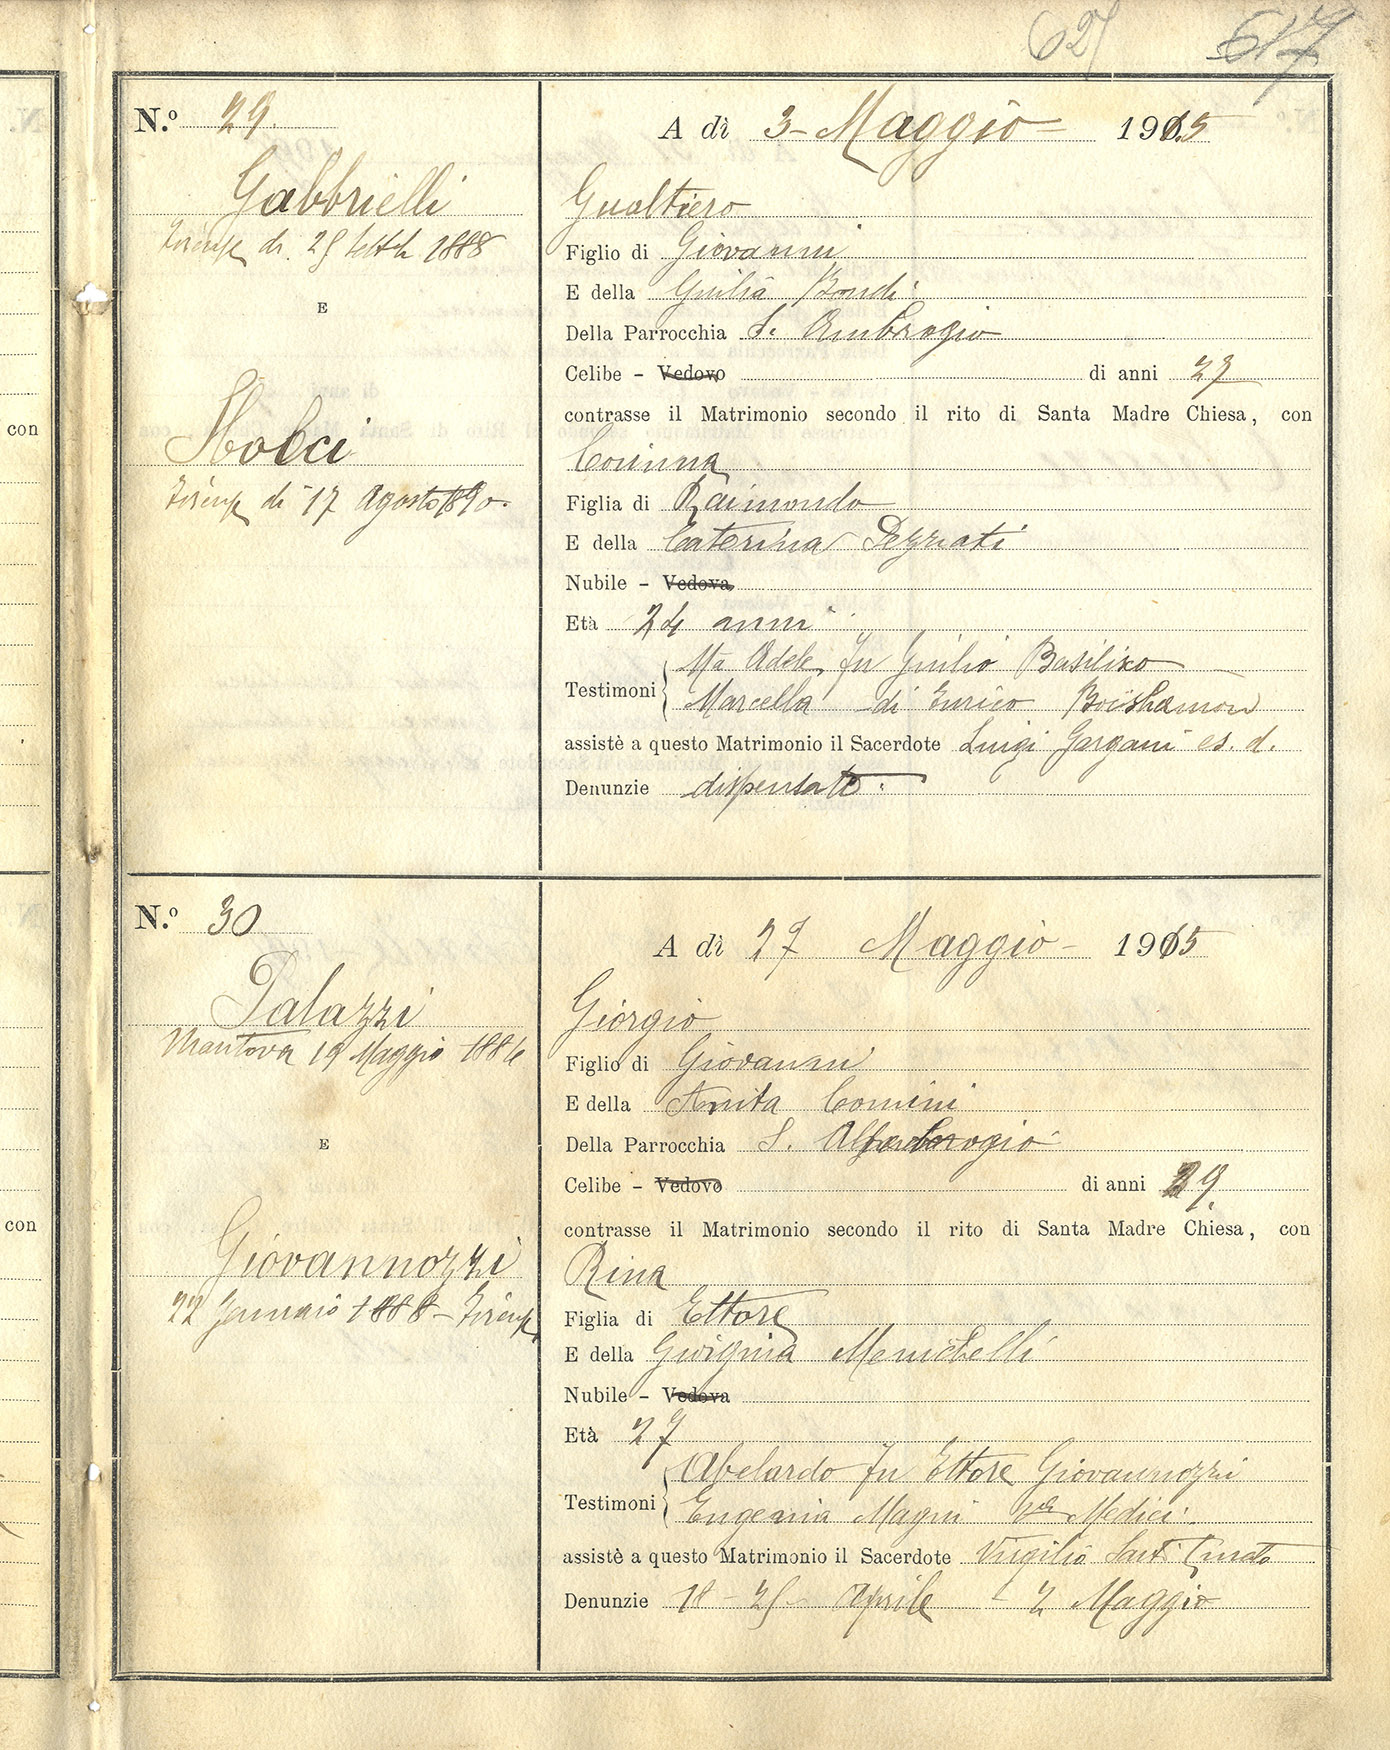 627 617
N.º 29
A dì 3 – Maggio – 1915
Gabbrielli
Firenze dì. 29 Settbre 1888
E
Gualtiero
Figlio di Giovanni
E della Giulia Bondi
Della Parrocchia S. Ambrogio
Celibe – Vedovo di anni 27
contrasse il Matrimonio secondo il rito di Santa Madre Chiesa, con
con
Firenze dì 17 Agosto 1890.
Corinna
Figlia di Raimondo
E della Caterina Pezzati
Nubile – Vedova
Età 24 anni
Testimoni
Ma Adele fu Giulio Basilico
Marcella di Enrico
assistè a questo Matrimonio il Sacerdote Luigi Gargani
Denunzie dispensate.
N.º 30
A dì 27 Maggio – 1915
Palazzi
Mantova 19 Maggio 1886
E
Giorgio
Figlio di Giovanni
E della Anita Comini
Della Parrocchia S. Ambrogio
Celibe – Vedovo di anni 29.
contrasse il Matrimonio secondo il rito di Santa Madre Chiesa, con
con
Giovannozzi
22 Gennaio 1888 – Firenze
Rina
Figlia di Ettore
E della Menichelli
Nubile – Vedova
Età 27
Testimoni
Abelardo fu Ettore Giovannozzi
Eugenia Magni Medici
assistè a questo Matrimonio il Sacerdote Virgilio
Denunzie 18 – 25 – Aprile – 2 Maggio